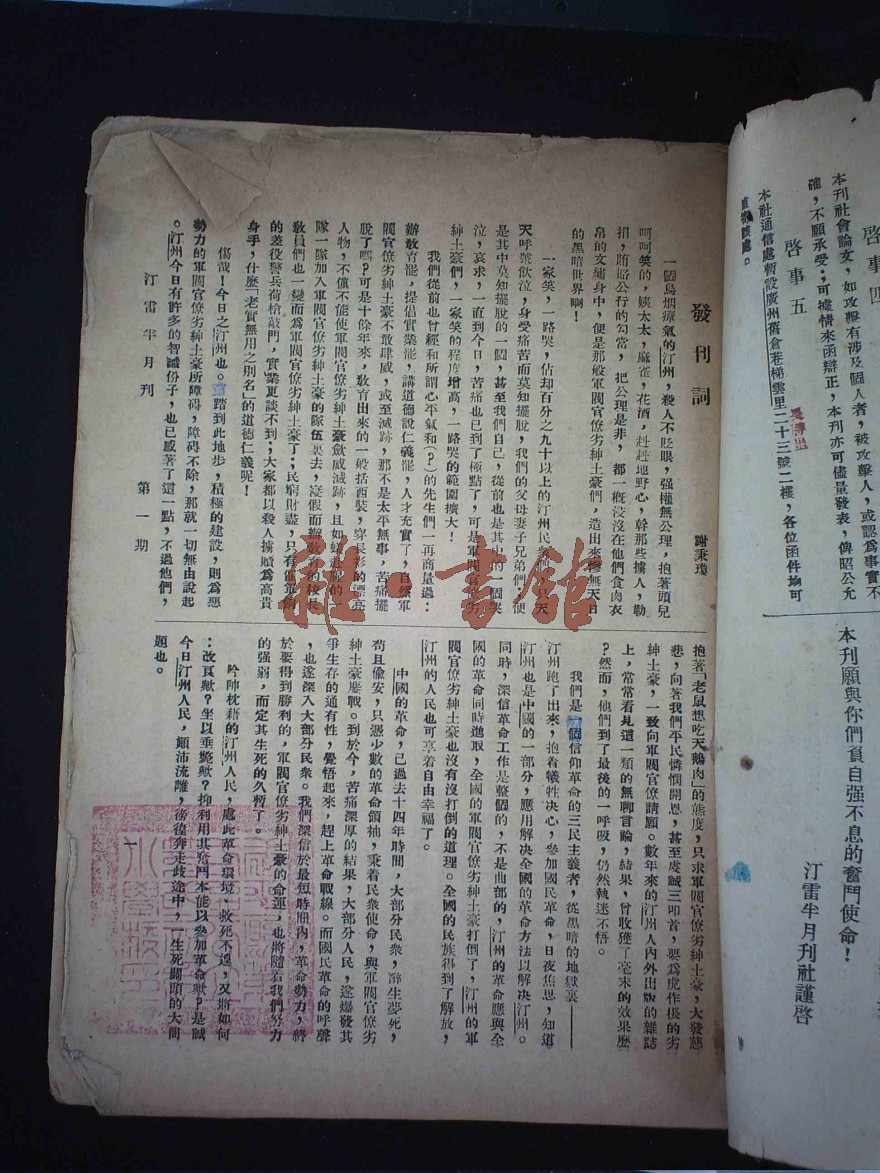 啓事四
本刊社會論文,如攻擊有涉及個人者,被攻擊人,或認爲事實不
確,不願承受;可據情來函辯正,本刊亦可儘量發表,俾昭公允
啓事五
本社通信處暫設廣州舊倉巷梯雲里二十三號二樓,各位函件均可
處。
本刊願與你們負自强不息的奮鬥使命!
汀雷半月刊社謹啓
發刊詞
謝秉瓊
一個烏烟瘴氣的汀州,殺人不貶眼,强權無公理,抱著頭兒
呵呵笑的,姨太太,麻雀,花酒,赳赳地野心,幹那些擄人,勒
捐,賄賂公行的勾當,把公理是非,都一槪浸沒在他們食肉衣
帛的文繡身中,便是那般軍閥官僚劣紳土豪們,造出來慘無天日
的黑暗世界啊!
一家笑,一路哭,佔却百分之九十以上的汀州民衆們,只天
天呼號飲泣,身受痛苦而莫知擺脫,我們的父母妻子兄弟們,便
是其中莫知擺脫的一個,甚至我們自己,從前也是其中的一個哭
泣,哀求,一直到今日,苦痛也已到了極點了,可是軍閥官僚劣
紳土豪們,一家笑的程度增高,一路哭的範圍擴大!
我們從前也曾經和所謂心平氣和(?)的先生們一再商量過:
辦敎育罷,提倡實業罷,講道德說仁義罷,人才充實了,自然軍
閥官僚劣紳土豪不敢肆威,或至滅跡,那不是太平無事,苦痛擺
脫了嗎?可是十餘年來,敎育出來的一般括西裝,穿長衫的漂亮
人物,不僅不能使軍閥官僚劣紳土豪歛威滅跡,且如蟻赴羶的一
隊一隊加入軍閥官僚劣紳土豪的隊伍裏去,寖假而辦敎育的校長
敎員們也一變而爲軍閥官僚劣紳土豪了;民窮財盡,只有值軍餉
的差役警兵荷槍敲門,實業更談不到;大家都以殺人擄贖爲高貴
身手,什麼「老實無用之別名」的道德仁義呢!
傷哉!今日之汀州也。踏到此地步,積極的建設,則爲惡
勢力的軍閥官僚劣紳土豪所障碍,障碍不除,那就一切無由說起
。汀州今日有許多的智識份子,也已感著了這一點,不過他們,
汀雷半月刊 第一期
抱著「老鼠想吃天鵝肉」的態度,只求軍閥官僚劣紳土豪,大發慈
悲,向著我們平民憐憫開恩,甚至虔誠三叩首,要爲虎作倀的劣
紳土豪,一致向軍閥官僚請願。數年來的汀州人內外出版的雜誌
上,常常看見這一類的無聊言論,結果,曾收獲了毫末的效果麽
?然而,他們到了最後的一呼吸,仍然執迷不悟。
我們是一個信仰革命的三民主義者,從黑暗的地獄裏——
汀州跑了出來,抱着犧牲决心,參加國民革命,日夜焦思,知道
汀州也是中國的一部分,應用解决全國的革命方法以解决汀州。
同時,深信革命工作是整個的,不是曲部的,汀州的革命應與全
國的革命同時進取,全國的軍閥官僚劣紳土豪打倒了,汀州的軍
閥官僚劣紳土豪也沒有沒打倒的道理。全國的民族得到了解放,
汀州的人民也可享着自由幸福了。
中國的革命,已過去十四年時間,大部分民衆,醉生夢死,
苟且偸安,只憑少數的革命領袖,秉着民衆使命,與軍閥官僚劣
紳土豪鏖戰。到於今,苦痛深厚的結果,大部分人民,遂爆發其
爭生存的通有性,覺悟起來,趕上革命戰線。而國民革命的呼聲
,也遂深入大部分民衆。我們深信於最短時間內,革命勢力,終
於要得到勝利的,軍閥官僚劣紳土豪的命運,也將隨着我們努力
的强弱,而定其生死的久暫了。
吟呻枕藉的汀州人民,處此革命環境,救死不遑,又將如何
:改頁歟?坐以垂斃歟?抑利用其奮鬥本能以參加革命歟?是誠
今日汀州人民,顚沛流離,徬徨奔走歧途中,一生死關頭的大問
題也。
一
雜·書館